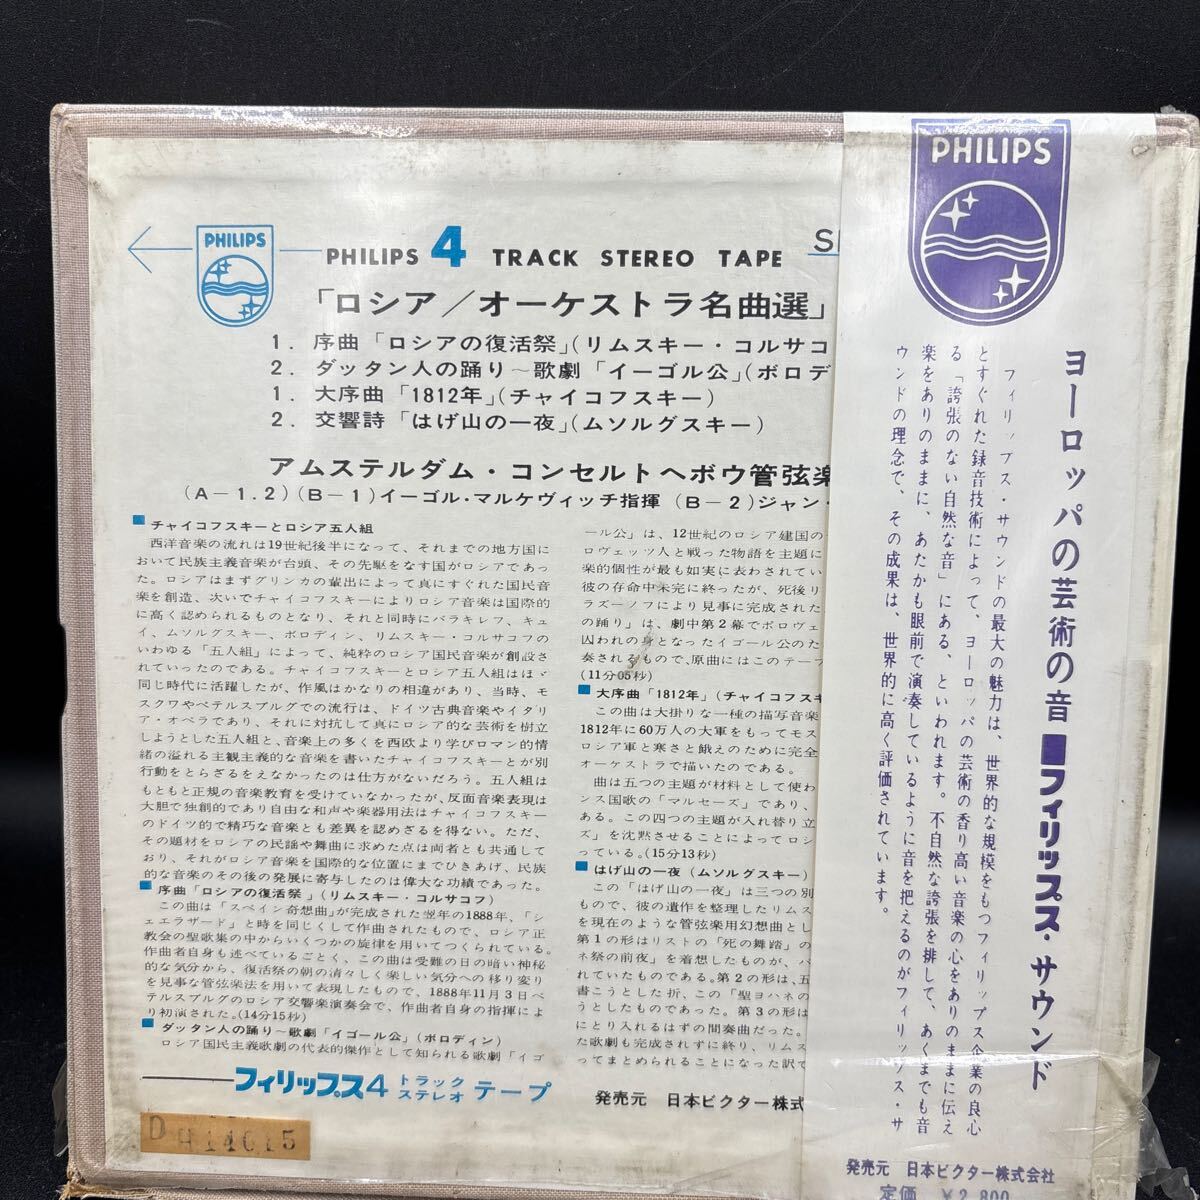 PHILIPS
PHILIPS 4 TRACK STEREO TAPE
「ロシア/オーケストラ名曲選」
1. 序曲「ロシアの復活祭」(リムスキー・コルサコ
2. ダッタン人の踊り~歌劇「イーゴル公」(ボロデ
1. 大序曲「1812年」(チャイコフスキー)
2. 交響詩「はげ山の一夜」(ムソルグスキー)
アムステルダム・コンセルトヘボウ管弦楽
(A-1.2)(B-1)イーゴル・マルケヴィッチ指揮 (B-2)ジャン・
チャイコフスキーとロシア五人組
西洋音楽の流れは19世紀後半になって、それまでの地方国に
おいて民族主義音楽が台頭、その先駆をなす国がロシアであっ
た。ロシアはまずグリンカの輩出によって真にすぐれた国民音
楽を創造、次いでチャイコフスキーによりロシア音楽は国際的
に高く認められるものとなり、それと同時にバラキレフ、キュ
イ、ムソルグスキー、ボロディン、リムスキー・コルサコフの
いわゆる「五人組」によって、純粋のロシア国民音楽が創設さ
れていったのである。チャイコフスキーとロシア五人組はほゞ
同じ時代に活躍したが、作風はかなりの相違があり、当時、モ
スクワやペテルスブルグでの流行は、ドイツ古典音楽やイタリ
ア・オペラであり、それに対抗して真にロシア的な芸術を樹立
しようとした五人組と、音楽上の多くを西欧より学びロマン的情
緒の溢れる主観主義的な音楽を書いたチャイコフスキーとが別
行動をとらざるをえなかったのは仕方がないだろう。五人組は
もともと正規の音楽教育を受けていなかったが、反面音楽表現は
大胆で独創的であり自由な和声や楽器用法はチャイコフスキー
のドイツ的で精巧な音楽とも差異を認めざるを得ない。ただ、
その題材をロシアの民謡や舞曲に求めた点は両者とも共通して
おり、それがロシア音楽を国際的な位置にまでひきあげ、民族
的な音楽のその後の発展に寄与したのは偉大な功績であった。
序曲「ロシアの復活祭」(リムスキー・コルサコフ)
この曲は「スペイン奇想曲」が完成された翌年の1888年、「シ
ェエラザード」と時を同じくして作曲されたもので、ロシア正
教会の聖歌集の中からいくつかの旋律を用いてつくられている。
作曲者自身も述べているごとく、この曲は受難の日の暗い神秘
的な気分から、復活祭の朝の清々しく楽しい気分への移り変り
を見事な管弦楽法を用いて表現したもので、1888年11月3日ペ
テルスブルグのロシア交響楽演奏会で、作曲者自身の指揮によ
り初演された。(14分15秒)
ダッタン人の踊り~歌劇「イゴール公」(ボロディン)
ロシア国民主義歌劇の代表的傑作として知られる歌劇「イゴ
ール公」は、12世紀のロシア建国の
ロヴェッツ人と戦った物語を主題に
楽的個性が最も如実に表わされてい
彼の存命中未完に終ったが、死後リ
ラズーノフにより見事に完成された
の踊り」は、劇中第2幕でポロヴェ
囚われの身となったイゴール公のた
奏されるもので、原曲にはこのテープ
(11分05秒)
大序曲「1812年」(チャイコフスキ
この曲は大掛りな一種の描写音楽
1812年に60万人の大軍をもってモス
ロシア軍と寒さと餓えのために完全
オーケストラで描いたのである。
曲は五つの主題が材料として使わ
ンス国歌の「マルセーズ」であり、
ある。この四つの主題が入れ替り立
ズ」を沈黙させることによってロシ
っている。(15分13秒)
はげ山の一夜(ムソルグスキー)
この「はげ山の一夜」は三つの別
もので、彼の遺作を整理したリムス
を現在のような管弦楽用幻想曲とし
第1の形はリストの「死の舞踏」の
ネ祭の前夜」を着想したものが、バ
れていたものである。第2の形は、五
書こうとした折、この「聖ヨハネの
うとしたものであった。第3の形は
にとり入れるはずの間奏曲だった。
た歌劇も完成されずに終り、リムス
ってまとめられることになった訳で
フィリップス4トラックステレオテープ
発売元 日本ビクター株式
PHILIPS
ヨーロッパの芸術の音■フィリップス・サウンド
フィリップス・サウンドの最大の魅力は、世界的な規模をもつフィリップス企業の良心
とすぐれた録音技術によって、ヨーロッパの芸術の香り高い音楽の心をありのままに伝え
る「誇張のない自然な音」にある、といわれます。不自然な誇張を排して、あくまでも音
楽をありのままに、あたかも眼前で演奏しているように音を把えるのがフィリップス・サ
ウンドの理念で、その成果は、世界的に高く評価されています。
発売元 日本ビクター株式会社
定価 ¥2,800